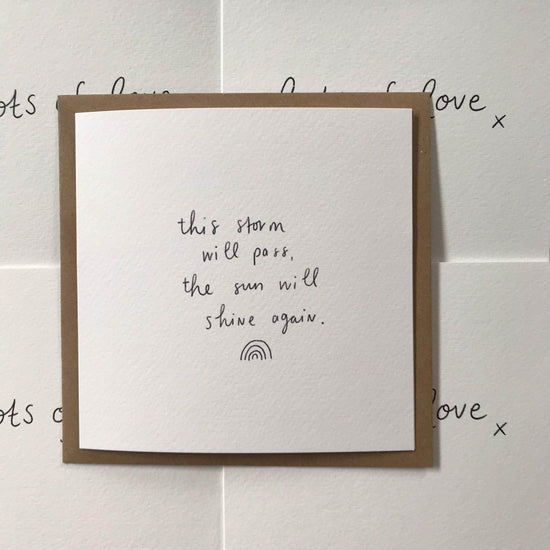 ots of love
love x
this storm
will pass,
the sun will
shine again.
ots
love x